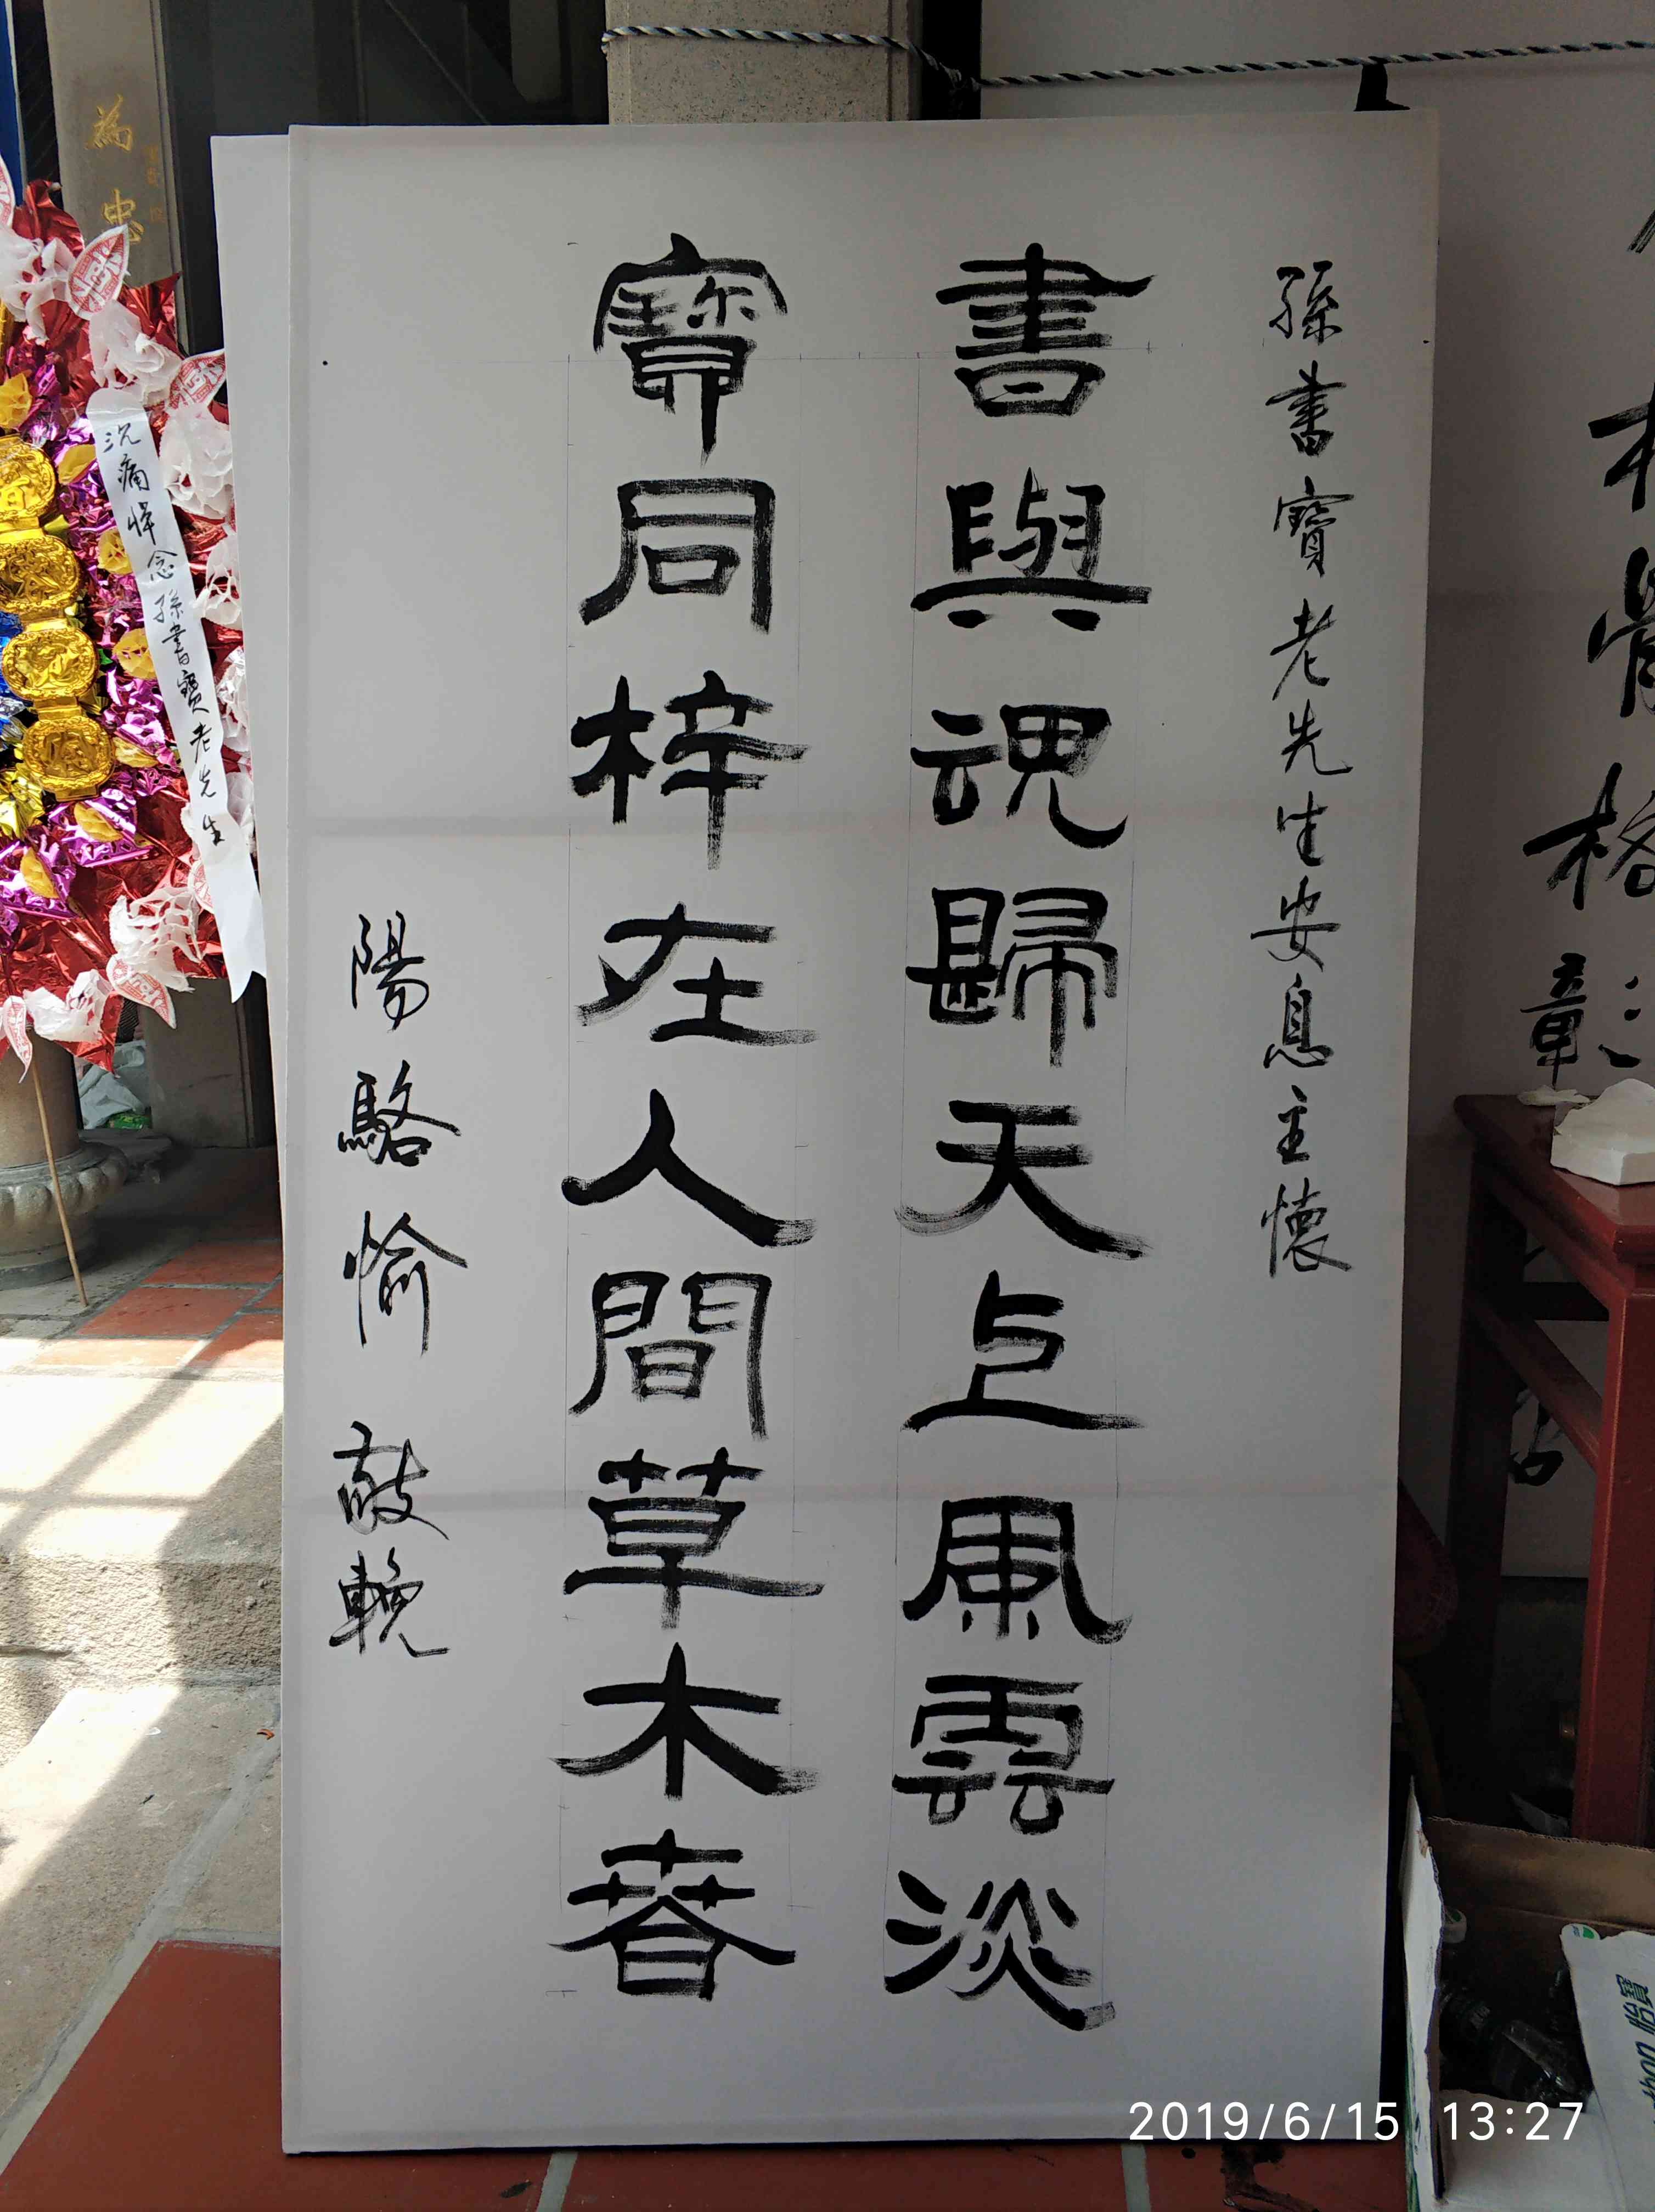 孫書寶老先生安息主懷
書與魂歸天上風雲淡
寶同梓在人間草木春
陽駱愉敬輓
沉痛悼念孫書寶老先生
為忠
骨格
彰
怡寶
2019/6/15 13:27